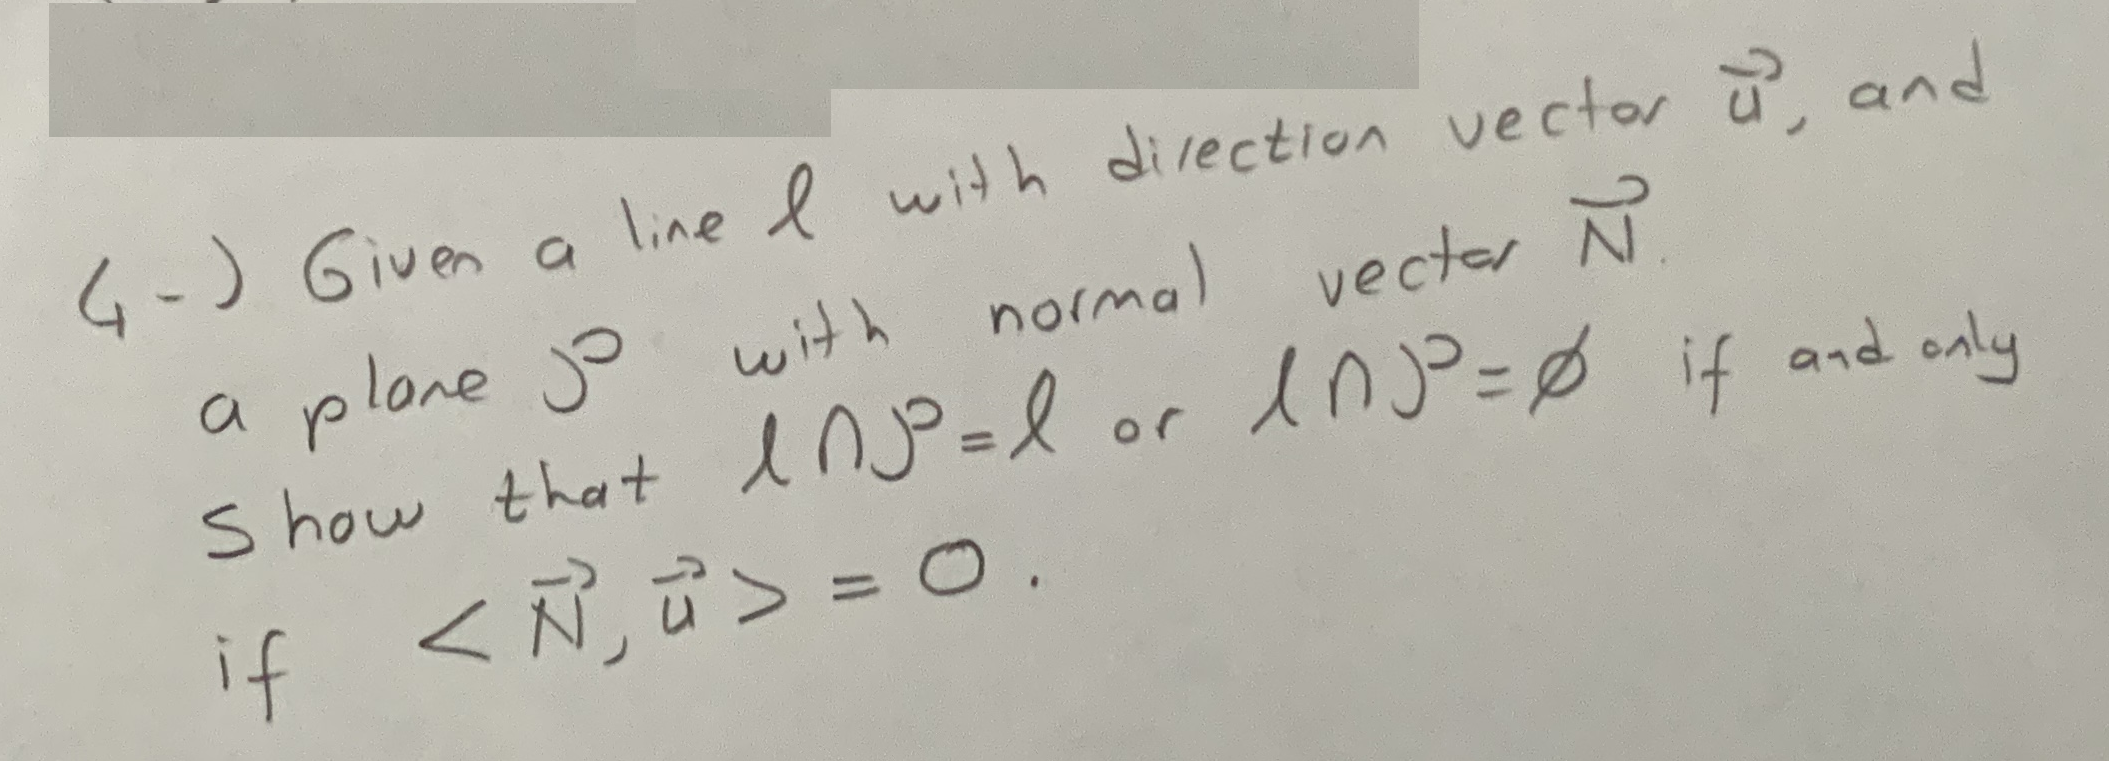 4-) Given a line l with direction vector u⃗, and
a plane P with normal vector N⃗.
Show that l∩P=l or l∩P=∅ if and only
if <N⃗,u⃗>=0.